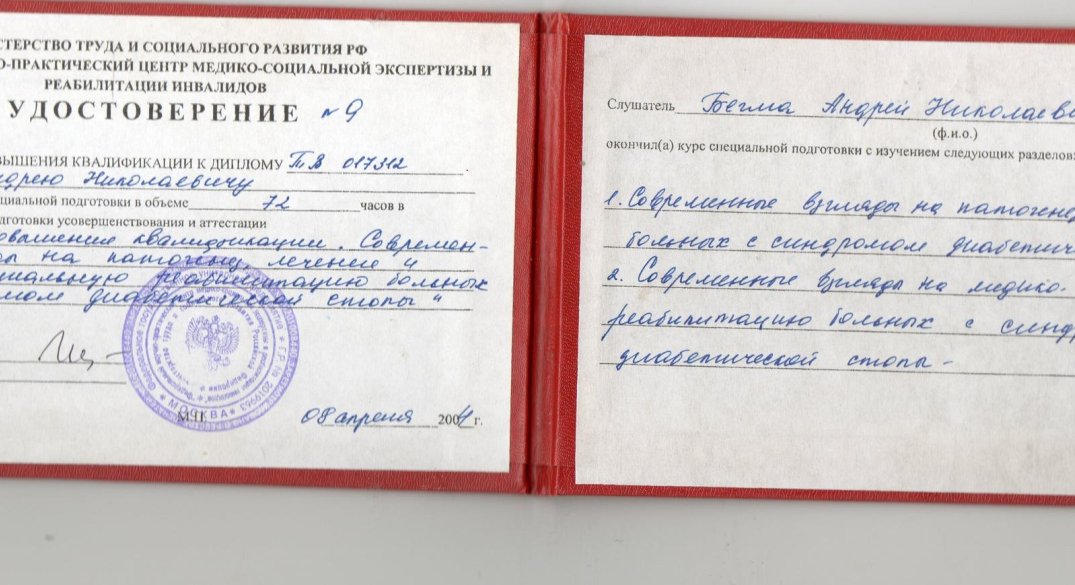 СТЕРСТВО ТРУДА И СОЦИАЛЬНОГО РАЗВИТИЯ РФ
О-ПРАКТИЧЕСКИЙ ЦЕНТР МЕДИКО-СОЦИАЛЬНОЙ ЭКСПЕРТИЗЫ И
РЕАБИЛИТАЦИИ ИНВАЛИДОВ
УДОСТОВЕРЕНИЕ № 9
ВЫШЕНИЯ КВАЛИФИКАЦИИ К ДИПЛОМУ ТВ 017312
ндрею Николаевичу
циальной подготовки в объеме 72 часов в
дготовки усовершенствования и аттестации
овышения квалификации. Современ-
ды на патогенез, лечение и
циальную реабилитацию больных
омом диабетической стопы"
МОСКВА
М.П.
08 апреля 2004 г.
Слушатель Бегма Андрей Николаеви
(ф.и.о.)
окончил(а) курс специальной подготовки с изучением следующих разделов:
1. Современные взгляды на патогене
больных с синдромом диабетич
2. Современные взгляды на медико-
реабилитацию больных с синд
диабетической стопы -